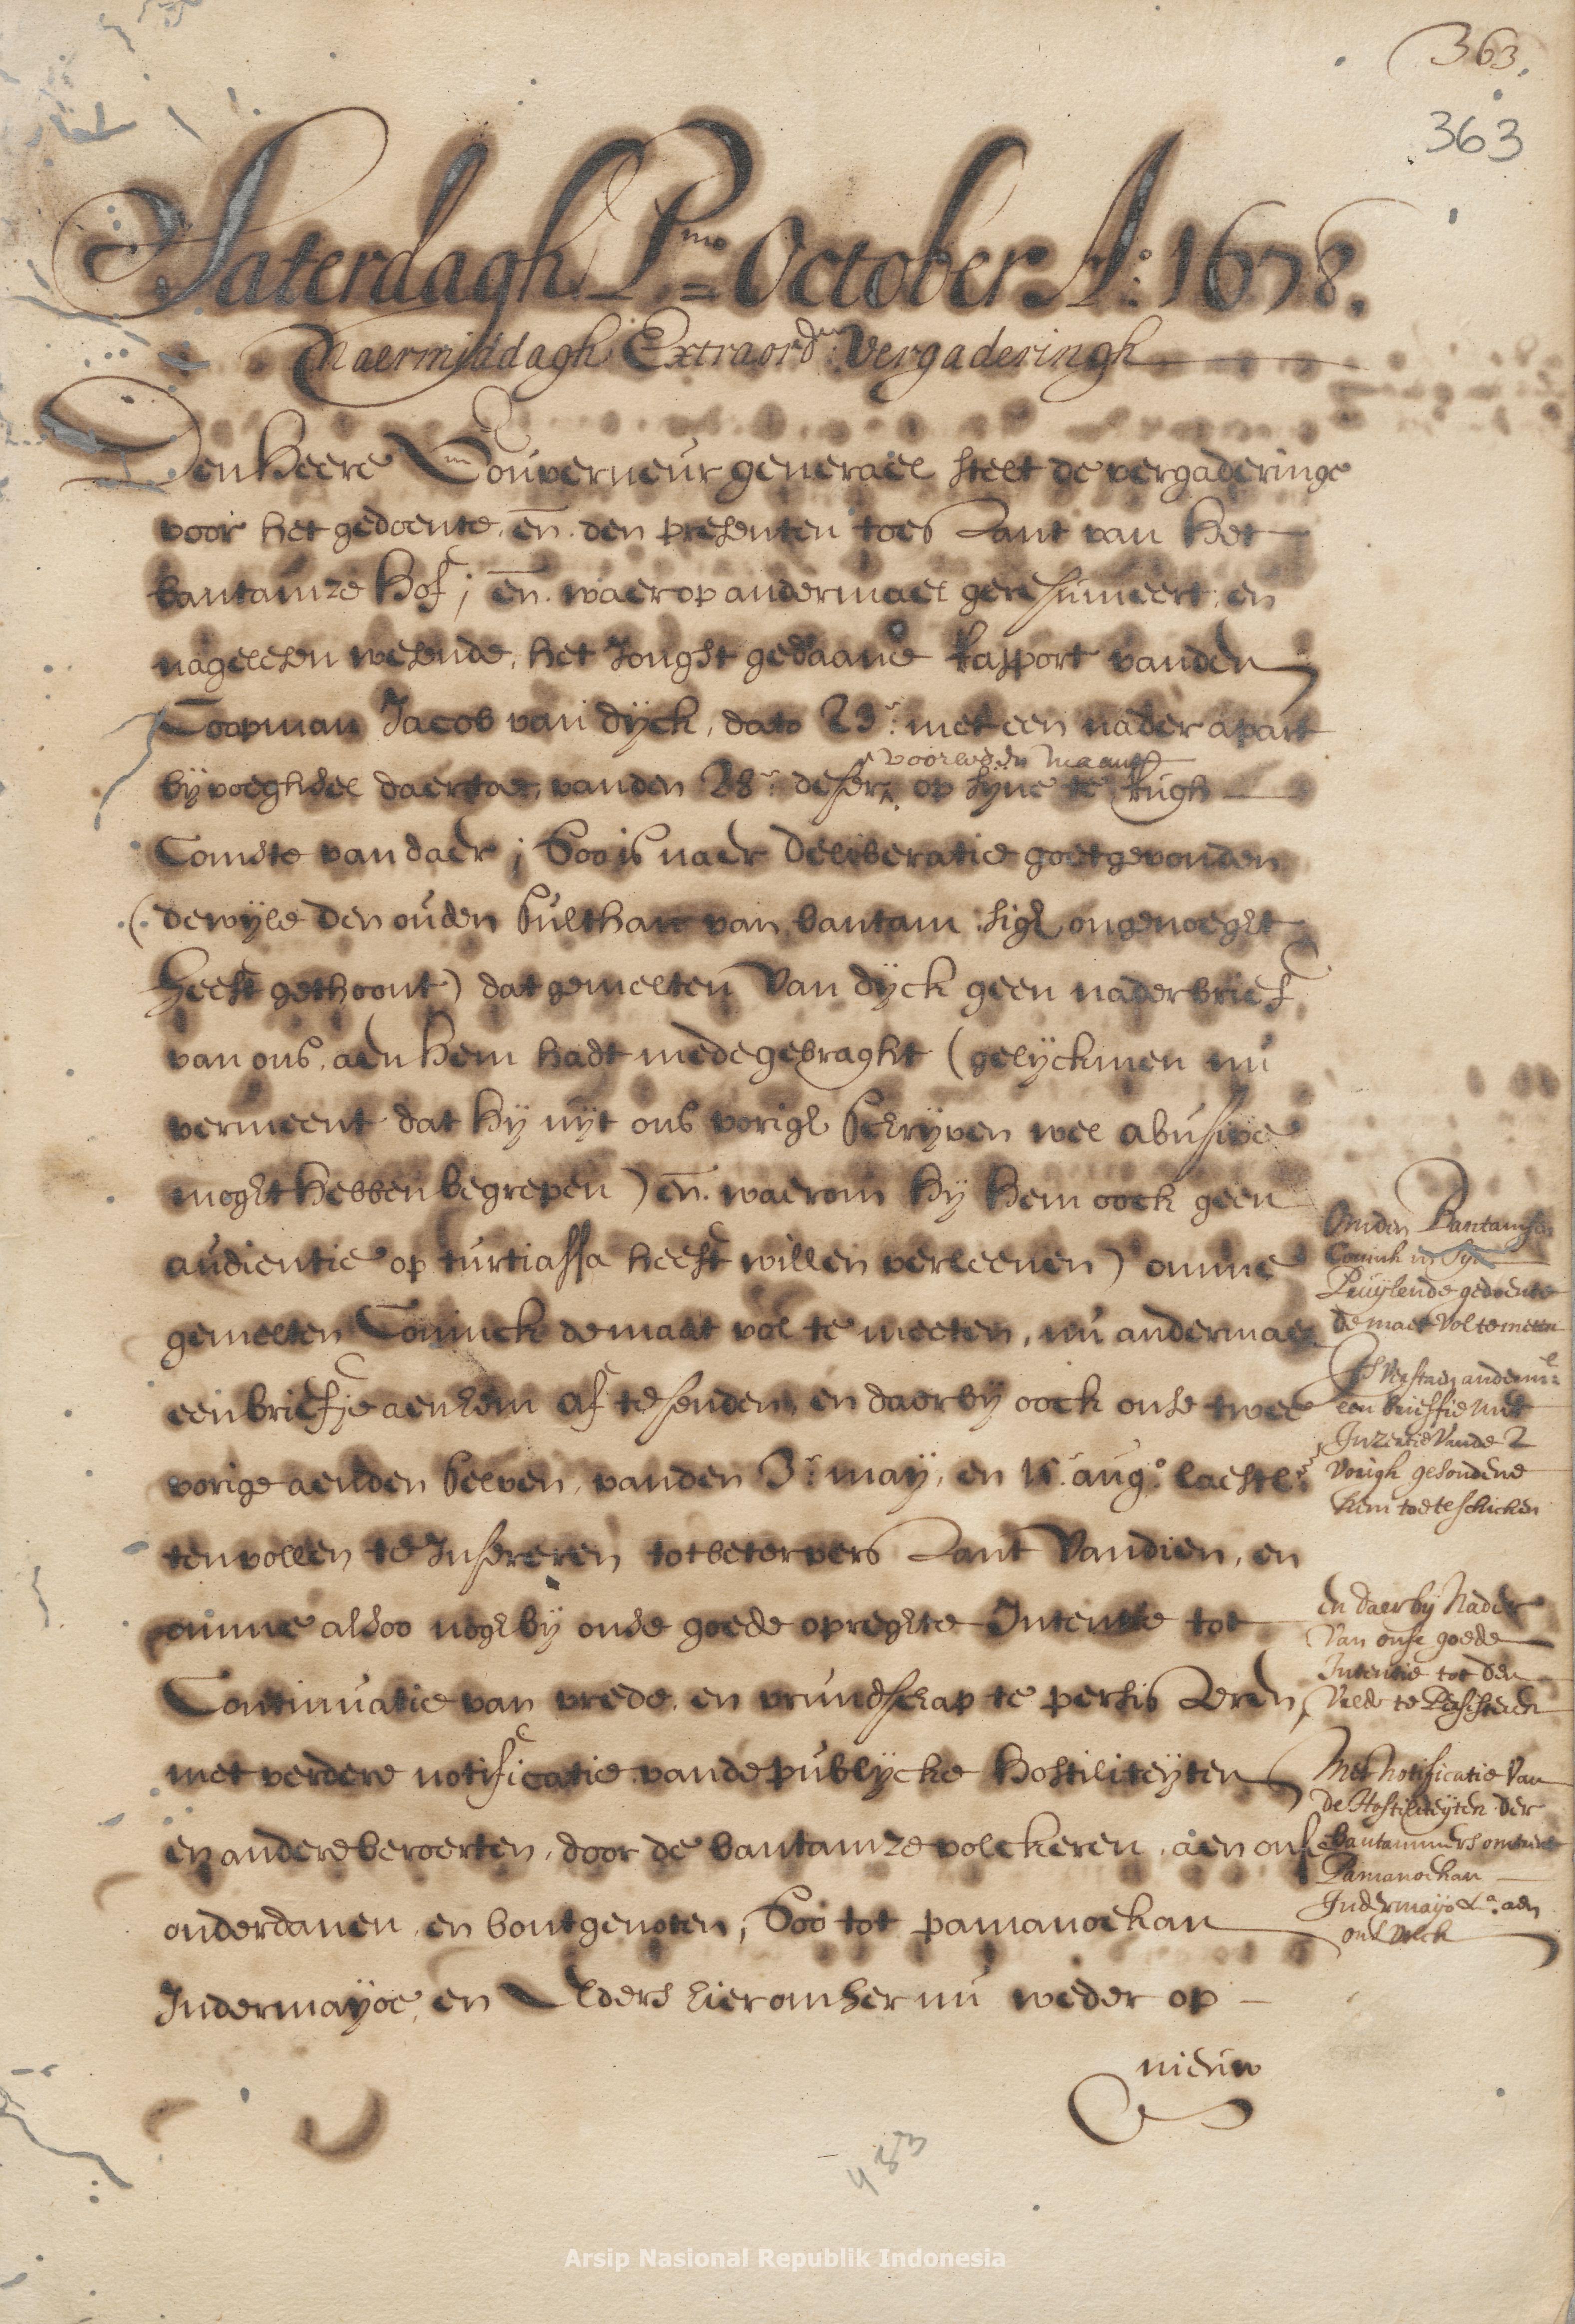 363.
363
Saterdagh P.mo October A.o 1678.
Naermiddagh Extraord.e Vergaderingh
Den Heere Gouverneur generael stelt de vergaderinge
voor het gedoente, en den presenten toestant van het
bantamze Hof; en waerop andermael geresumeert, en
nagelesen wesende, het Jonghst gedaane Rapport vanden
Coopman Jacob van dijck, dato 23.r met een nader apart
voorleden maant
bijvoeghsel daertoe, vanden 28.r deser, op syne te rugh
Comste van daer; Soo is naer deliberatie goetgevonden
(dewijle den ouden Sulthan van bantam sigh ongenoeght
heeft gethoont) dat gemelten Van dijck geen nader brief
van ons, aen hem hadt mede gebraght (gelijckmen nu
vermeent dat hij uijt ons vorigh schrijven wel abusive
moght hebben begrepen) en waerom hij hem oock geen
audientie op turtiassa heeft willen verleenen) omme
gemelten Coninck de maat vol te meeten, nu andermael
een briefje aen hem af te senden, en daerbij oock onse twee
vorige aenden selven, vanden 3.r maij, en 15.r aug.o laestl.n
ten vollen te Insereren tot beter verstant van dien, en
omme alsoo nogh bij onse goede opreghte Intentie tot
Continuatie van vrede, en vrundschap te persisteren,
met verdere notificatie vande publijcke hostiliteijten
en andere beroerten, door de bantamze volckeren, aen onse
onderdanen, en bontgenoten, Soo tot pamanoekan
Indermayoe, en Elders hieromher nu weder op
nieuw
Omden Bantamsen
Coninck in syn
Pruijlende gedoente
de maet vol te meten
Is verstaen anderm.l
een briefjie met
Insertie vande 2
vorigh gesondene
hem toe te schicken
en daerbij Nader
Van onse goede
Intentie tot den
Vrede te Persisteren
Met notificatie van
de Hostiliteijten der
Bantammers omtrent
Pamanoekan
Indermayo &a. aen
ons volck
483
Arsip Nasional Republik Indonesia